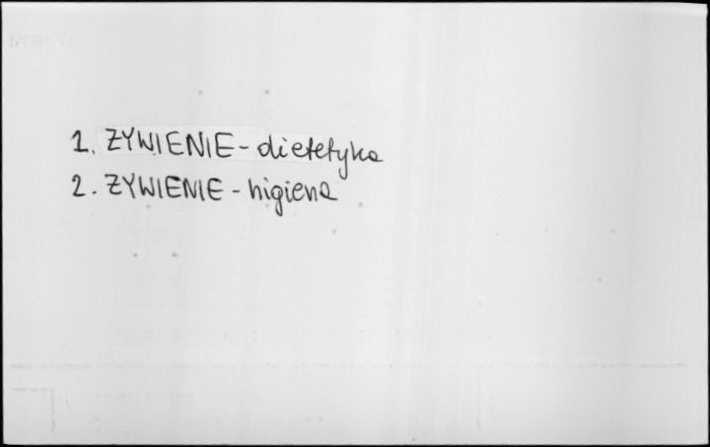 1. ŻYWIENIE - dietetyka
2. ŻYWIENIE - higiena